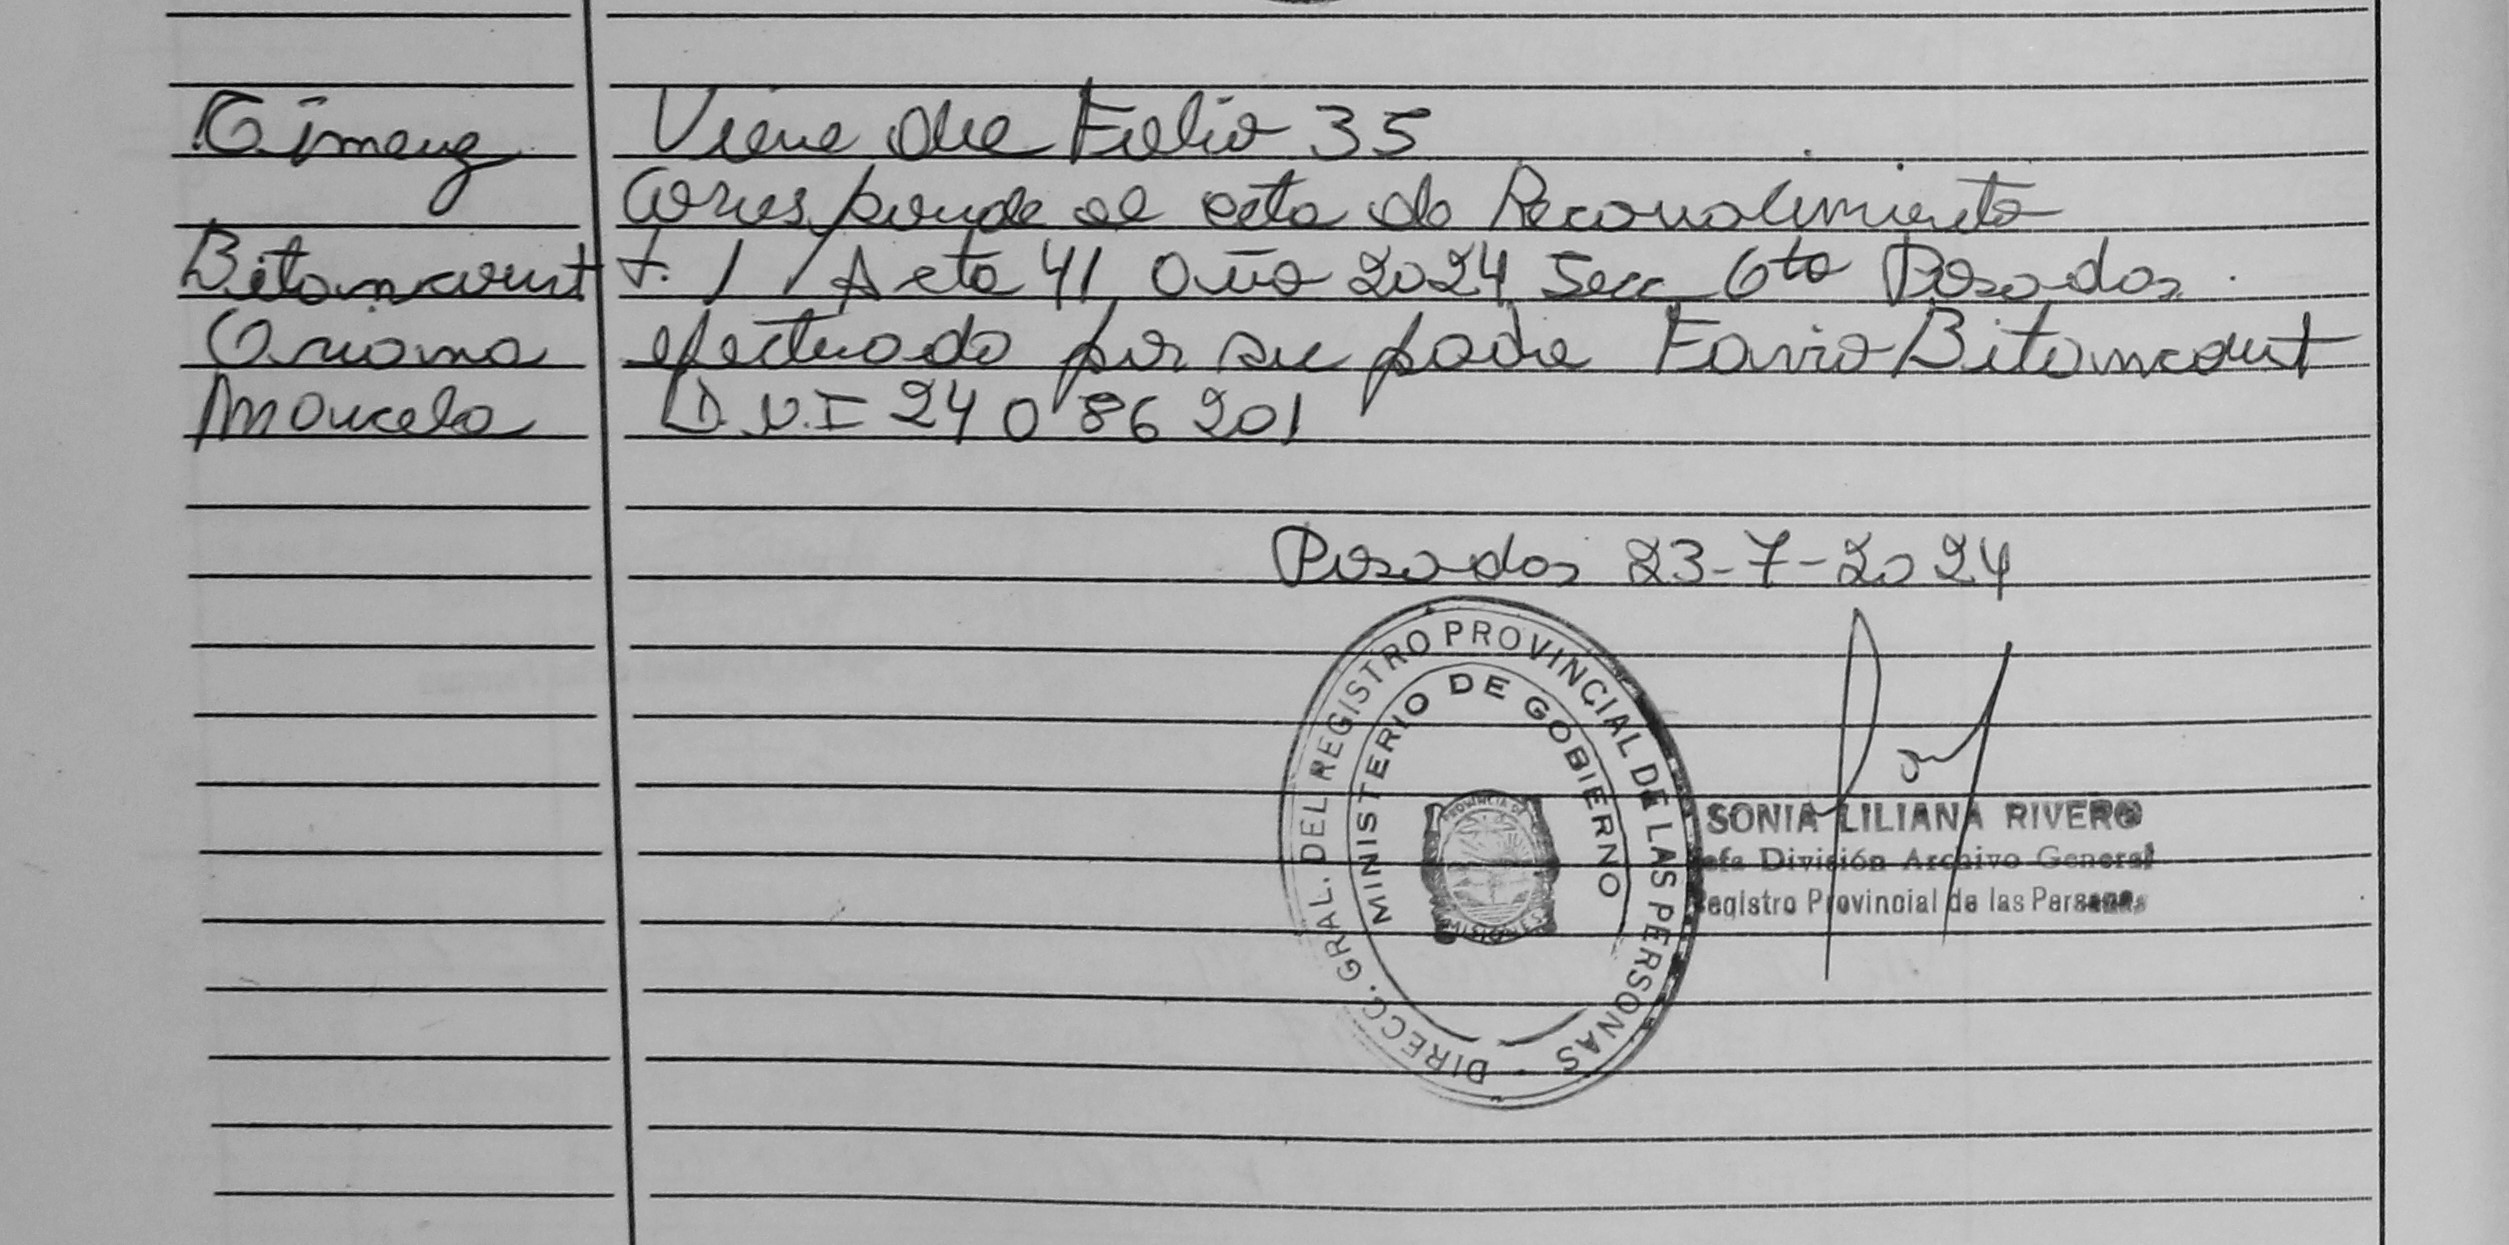 Gimenez
Bitancourt
Oriana
Maricela
Viene de Folio 35
Corresponde al acta de Reconocimiento
t. 1 / Acta 41 año 2024 Secc 6ta Posadas.
efectuado por su padre Favio Bitancourt
D.N.I 24 086 201
Posadas 23-7-2024
DIRECC. GRAL. DEL REGISTRO PROVINCIAL DE LAS PERSONAS
MINISTERIO DE GOBIERNO
PROVINCIA DE
MISIONES
SONIA LILIANA RIVERO
efe División Archivo General
egistro Provincial de las Personas